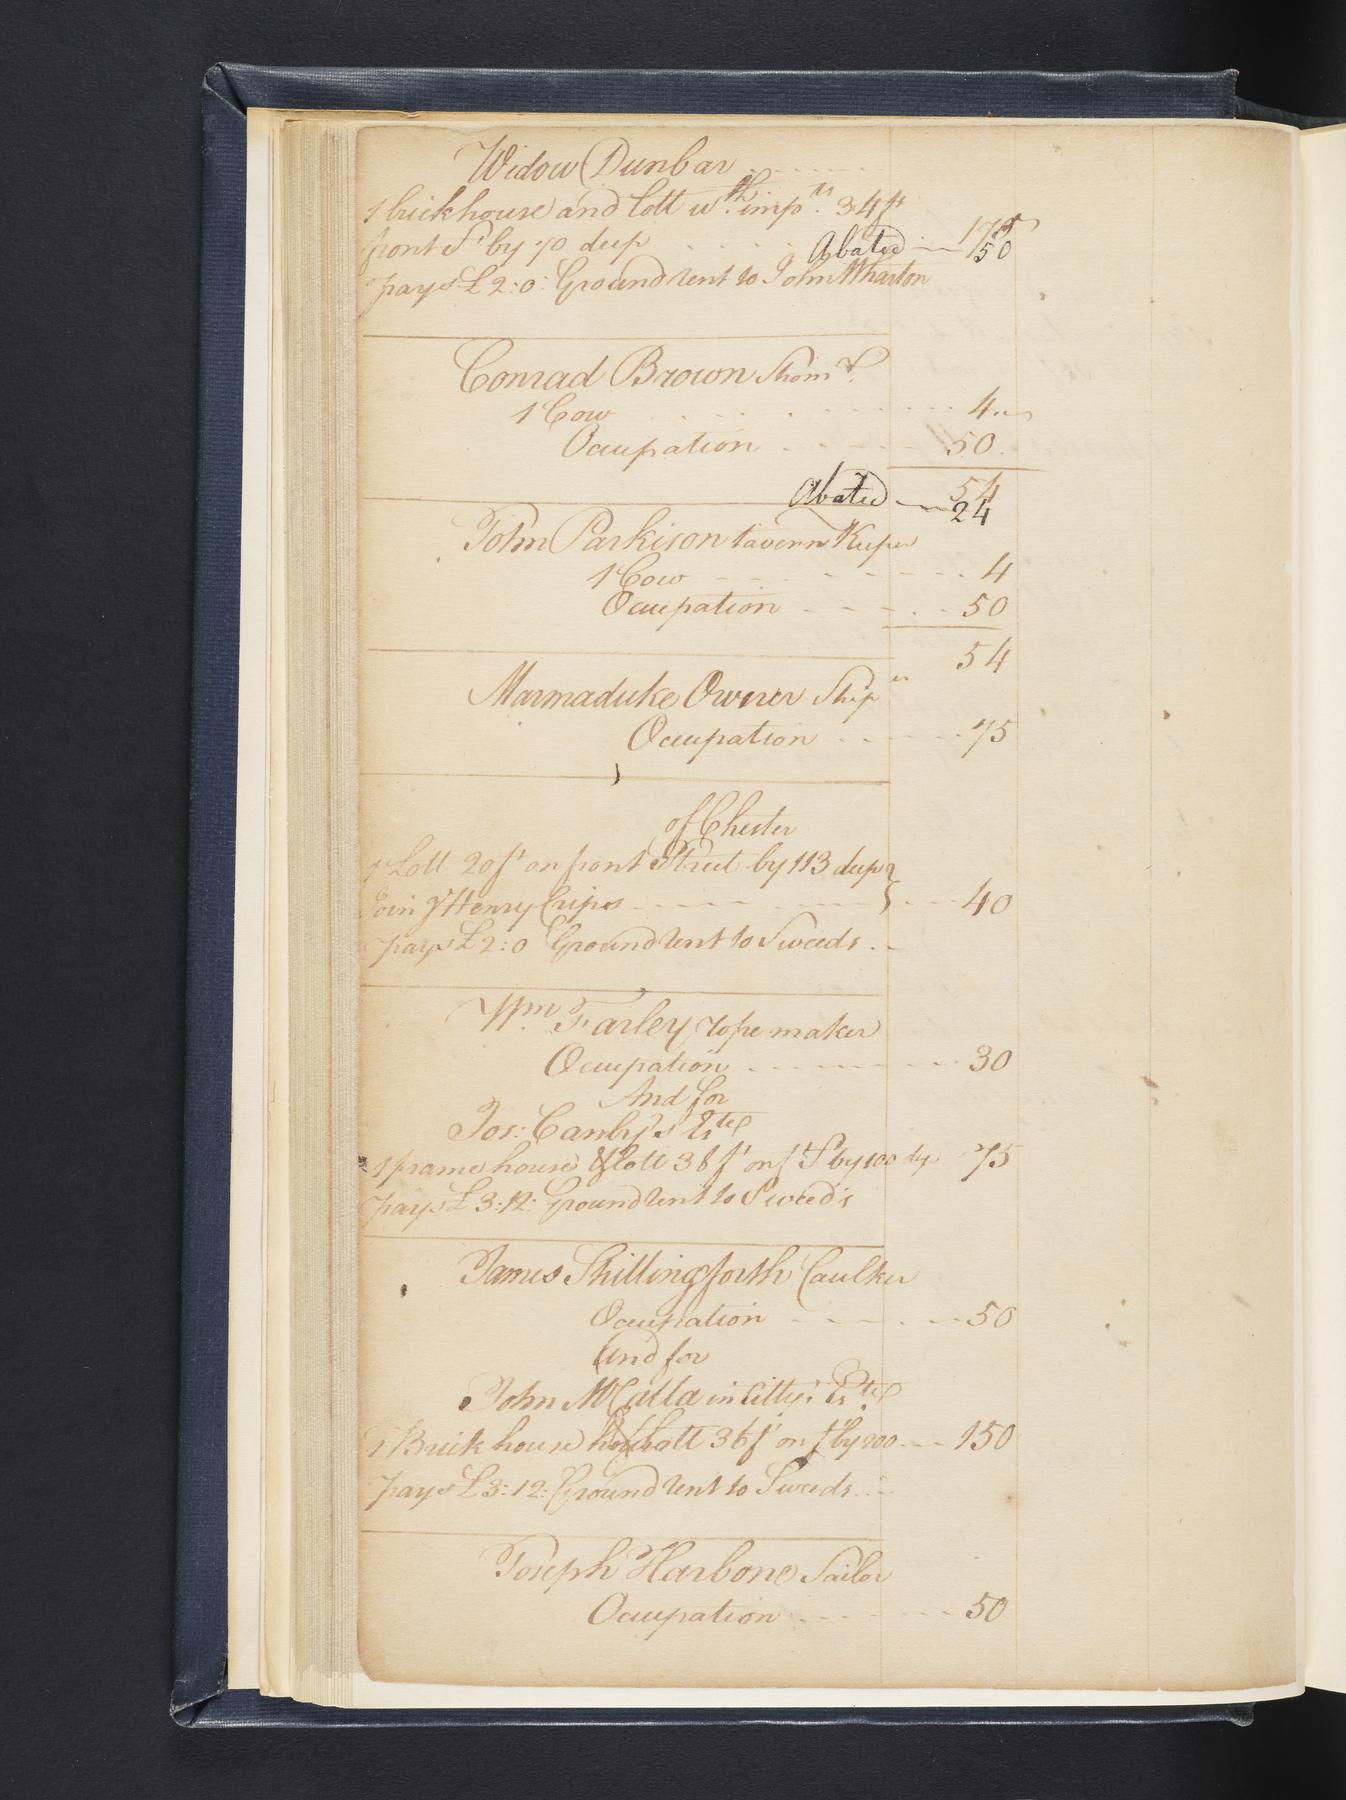 Widow Dunbar
1 brickhouse and Lott wth. impts. 34 ft
front St by 70 deep 175
Abated 50
pays £2:0: Ground rent to John Wharton
Conrad Brown
1 Cow 4
Ocupation 50
54
Abated 24
John Parkison tavern Keeper
1 Cow 4
Ocupation 50
54
Marmaduke Owner Ship
Ocupation 75
of Chester
1 Lott 20 ft on front Street by 113 deep
Join g Henry Crips 40
pays £2:0 Ground rent to Sweeds
Wm. Farley rope maker
Ocupation 30
And for
Jos: Canby's Este
1 frame house & Lott 38 ft on f St by 100 dp 75
pays £3:12: Ground rent to Sweed's
James Shillingforth Caulker
Ocupation 50
And for
John McCalla in Citty's Este
1 Brick house & Lott 36 ft on f by 200 150
pays £3:12: Ground rent to Sweeds
Joseph Harbone Sailor
Ocupation 50